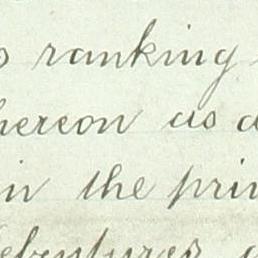 ranking
hereon as a
in the prin
ebentures